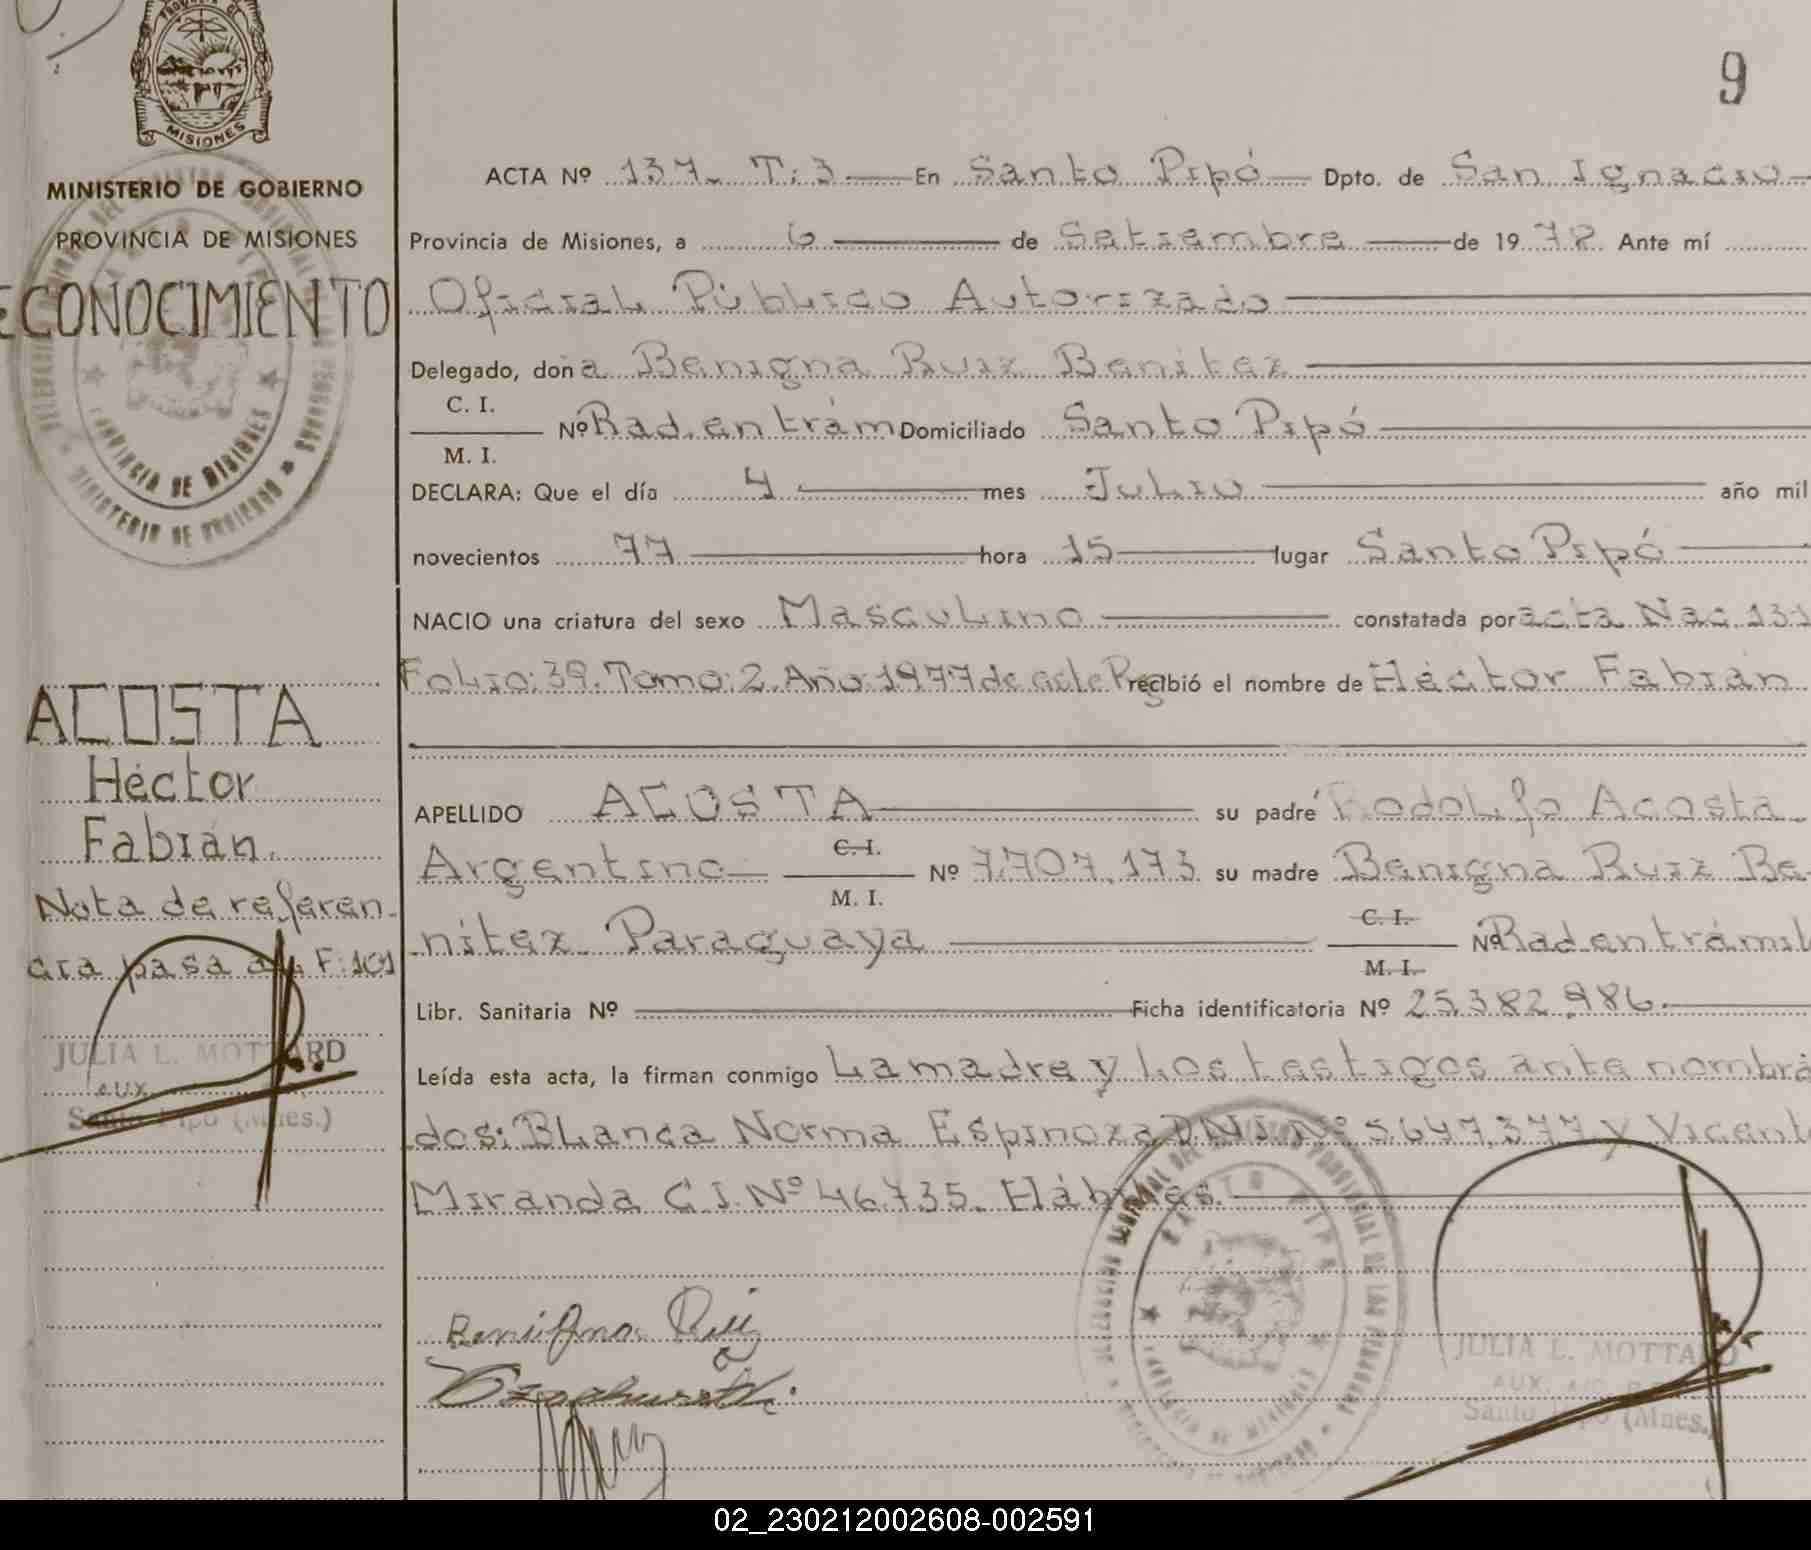 9
MISIONES
MINISTERIO DE GOBIERNO
PROVINCIA DE MISIONES
ECONOCIMIENTO
ACOSTA
Héctor
Fabián.
Nota de referen-
cia pasa al F:101
JULIA L. MOTTARD
AUX.
Santo Pipó (Mnes.)
ACTA Nº 137. T:3 En Santo Pipó Dpto. de San Ignacio
Provincia de Misiones, a 6 de Setiembre de 1978 Ante mí
Oficial Público Autorizado
Delegado, doña Benigna Ruiz Benitez
C. I.
Nº Rad. en trám Domiciliado Santo Pipó
M. I.
DECLARA: Que el día 4 mes Julio año mil
novecientos 77 hora 15 lugar Santo Pipó
NACIO una criatura del sexo Masculino constatada por acta Nac. 131
Folio: 39. Tomo: 2. Año: 1977 de este Reg recibió el nombre de Héctor Fabián
APELLIDO ACOSTA su padre Rodolfo Acosta
Argentino C. I. Nº 7.707.173 su madre Benigna Ruiz Be-
M. I.
nitez Paraguaya C. I. Nº Rad en trámit
M. I.
Libr. Sanitaria Nº Ficha identificatoria Nº 25.382.986.
Leída esta acta, la firman conmigo La madre y los testigos ante nombra
dos: Blanca Norma Espinoza D.N.I. Nº 5.647.377 y Vicent
Miranda C.I. Nº 46.735. Hábiles.
Benigna Ruiz
JULIA L. MOTTARD
AUX.
Santo Pipó (Mnes.)
02_230212002608-002591